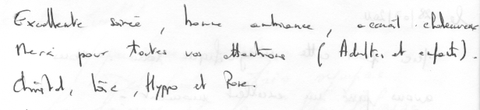 Excellente soirée, bonne ambiance, accueil chaleureux
Merci pour toutes vos attentions (Adultes et enfants).
Christel, Loïc, Hyppo et Rose.